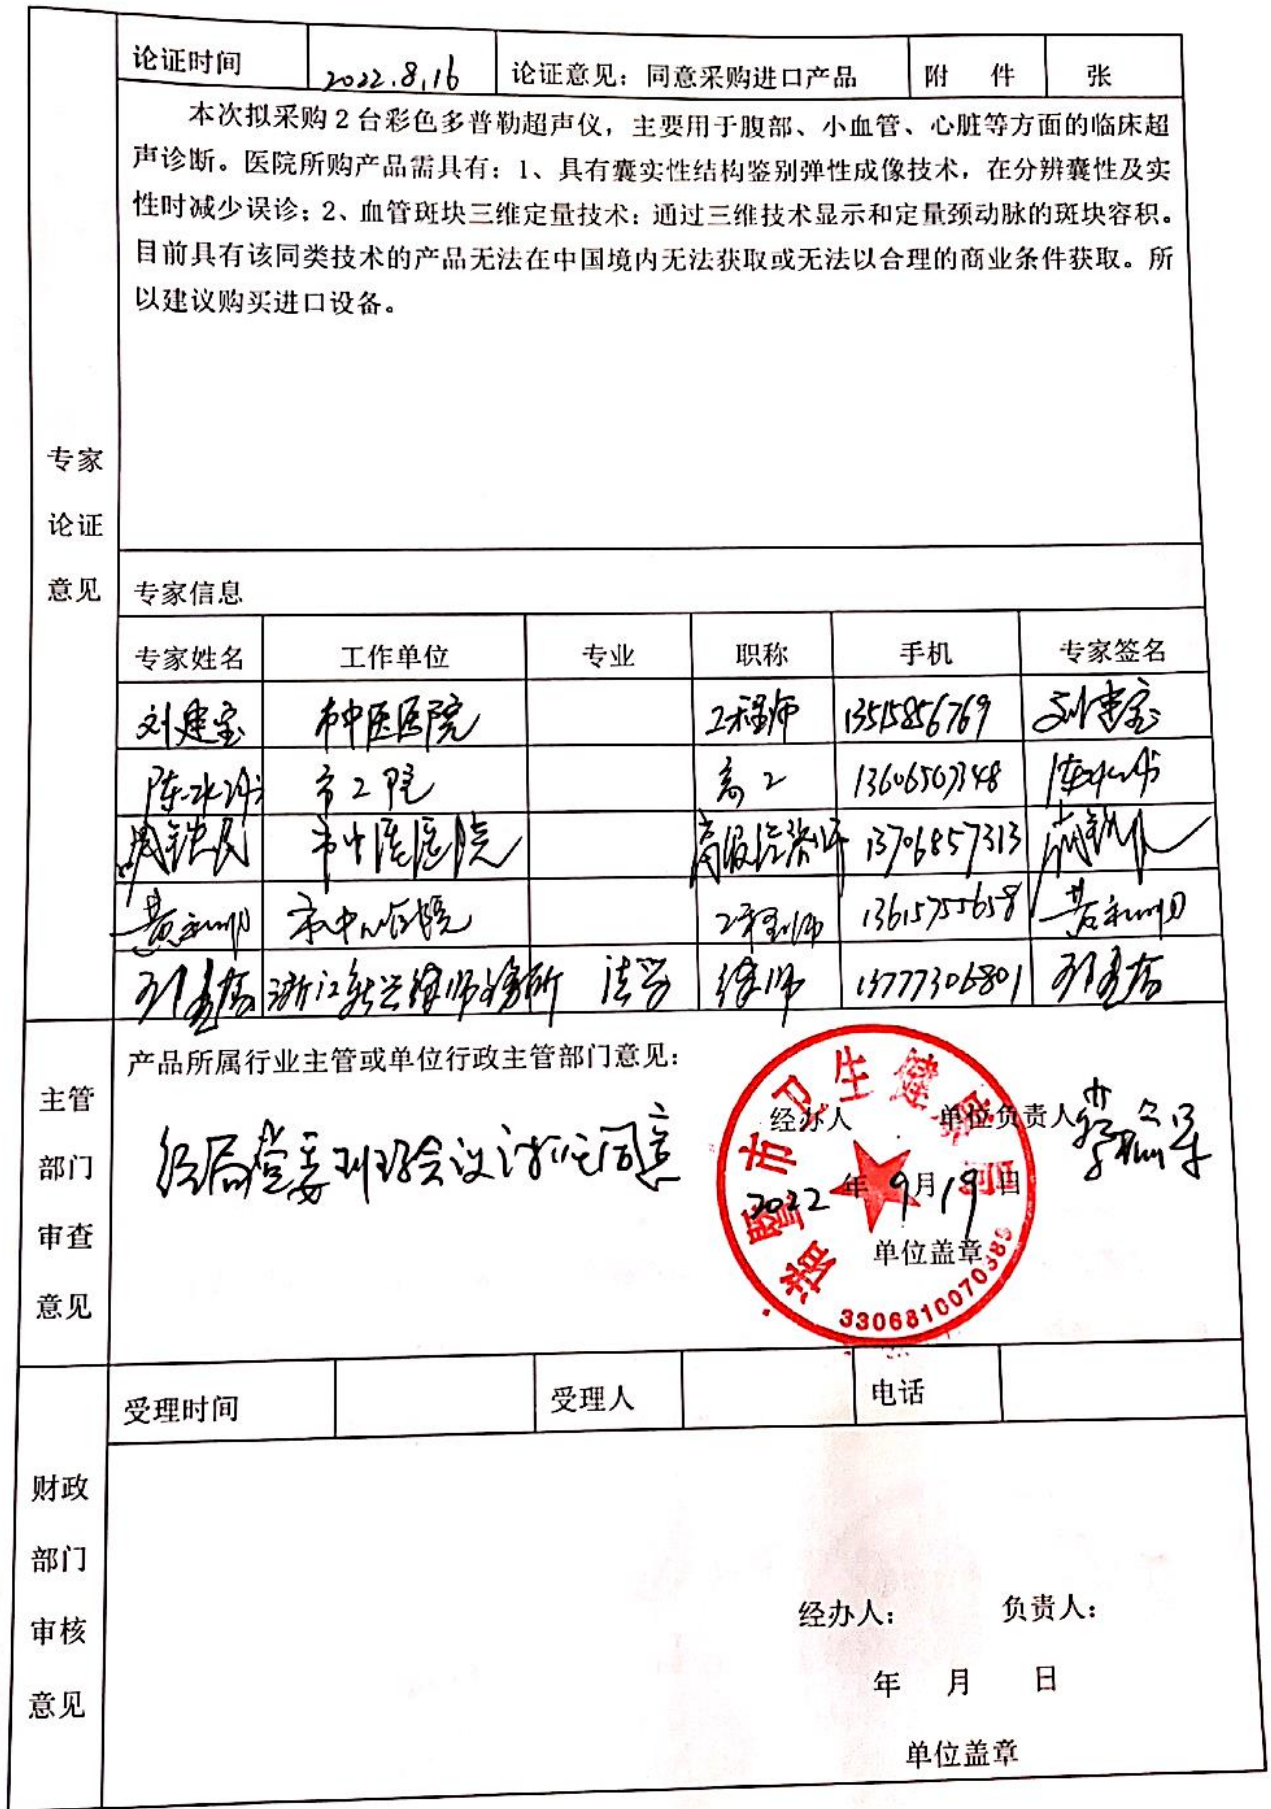 论证时间 2022.8.16 论证意见：同意采购进口产品 附 件 张
本次拟采购2台彩色多普勒超声仪，主要用于腹部、小血管、心脏等方面的临床超
声诊断。医院所购产品需具有：1、具有囊实性结构鉴别弹性成像技术，在分辨囊性及实
性时减少误诊；2、血管斑块三维定量技术：通过三维技术显示和定量颈动脉的斑块容积。
目前具有该同类技术的产品无法在中国境内无法获取或无法以合理的商业条件获取。所
以建议购买进口设备。
专家
论证
意见
专家信息
专家姓名 工作单位 专业 职称 手机 专家签名
刘建宝 市中医医院 工程师 13515856769 刘建宝
市2院 高工 13606507348
周铁民 市中医医院 13706857313
市中心医院 工程师 13615755658
浙江新兴律师事务所 法学 律师 13777306801
主管
部门
审查
意见
产品所属行业主管或单位行政主管部门意见：
经局党委班子会议讨论同意
经办人 单位负责人
2022 年 9月19日
单位盖章
诸暨市卫生健康局
财政
部门
审核
意见
受理时间 受理人 电话
经办人： 负责人：
年 月 日
单位盖章